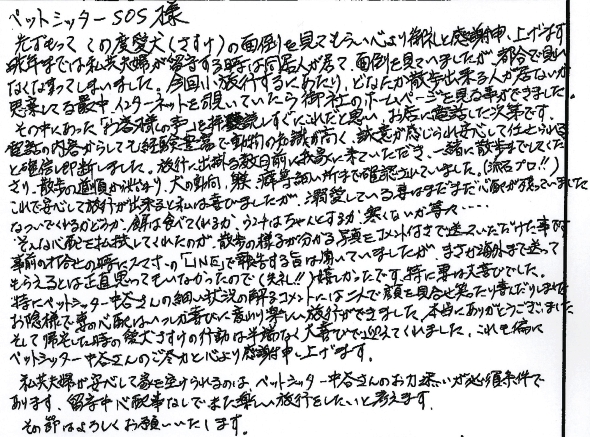 ペットシッターSOS様
先ずもって この度愛犬(さすけ)の面倒を見てもらい心より御礼と感謝申し上げます
昨年までは私共夫婦が留守する時は同居人が居て、面倒を見ていましたが、都合で見れ
なくなってしまいました。今回、旅行するにあたり、どなたか散歩出来る人が居ないか
思案してる最中、インターネットを覗いていたら御社のホームページを見る事ができました。
その中にあった「お客様の声」を拝読しすぐにこれだと思い、お店に電話した次第です。
電話の内容からしても経験豊富で動物の知識が高く、誠意が感じられ安心して任せられる
と確信即断しました。旅行に出掛ける数日前に我家に来ていただき、一緒に散歩までしてくだ
さり、散歩の道順から始まり、犬の動向、躾、癖等細い所まで確認されていました。(流石プロ!!)
これで安心して旅行が出来ると私は喜びましたが、溺愛している妻はまだまだ心配が残っていました
なついてくれるかどうか、餌は食べてくれるか、ウンチはちゃんとするか、寒くないか等々・・・・
そんな心配を払拭してくれたのが、散歩の様子が分かる写真をコメント付きで送っていただけた事です
事前の打合せの時にスマホの「LINE」で報告する旨は聞いていましたが、まさか海外まで送って
もらえるとは正直思ってもいなかったので(失礼!!)嬉しかったです。特に妻は大喜びでした。
特にペットシッター中谷さんの細い状況の解るコメントには二人で顔を見合せ笑ったり喜んだりしました
お陰様で妻の心配はいつしか喜びに変わり楽しい旅行ができました。本当にありがとうございました
そして帰宅した時の愛犬さすけの行動は半端なく大喜びで迎えてくれました。これも偏に
ペットシッター中谷さんのご尽力と心より感謝申し上げます。
私共夫婦が安心して家を空けられるのは、ペットシッター中谷さんのお力添いが必須条件で
あります、留守中心配事なしでまた楽しい旅行をしたいと考えます。
その節はよろしくお願いいたします。